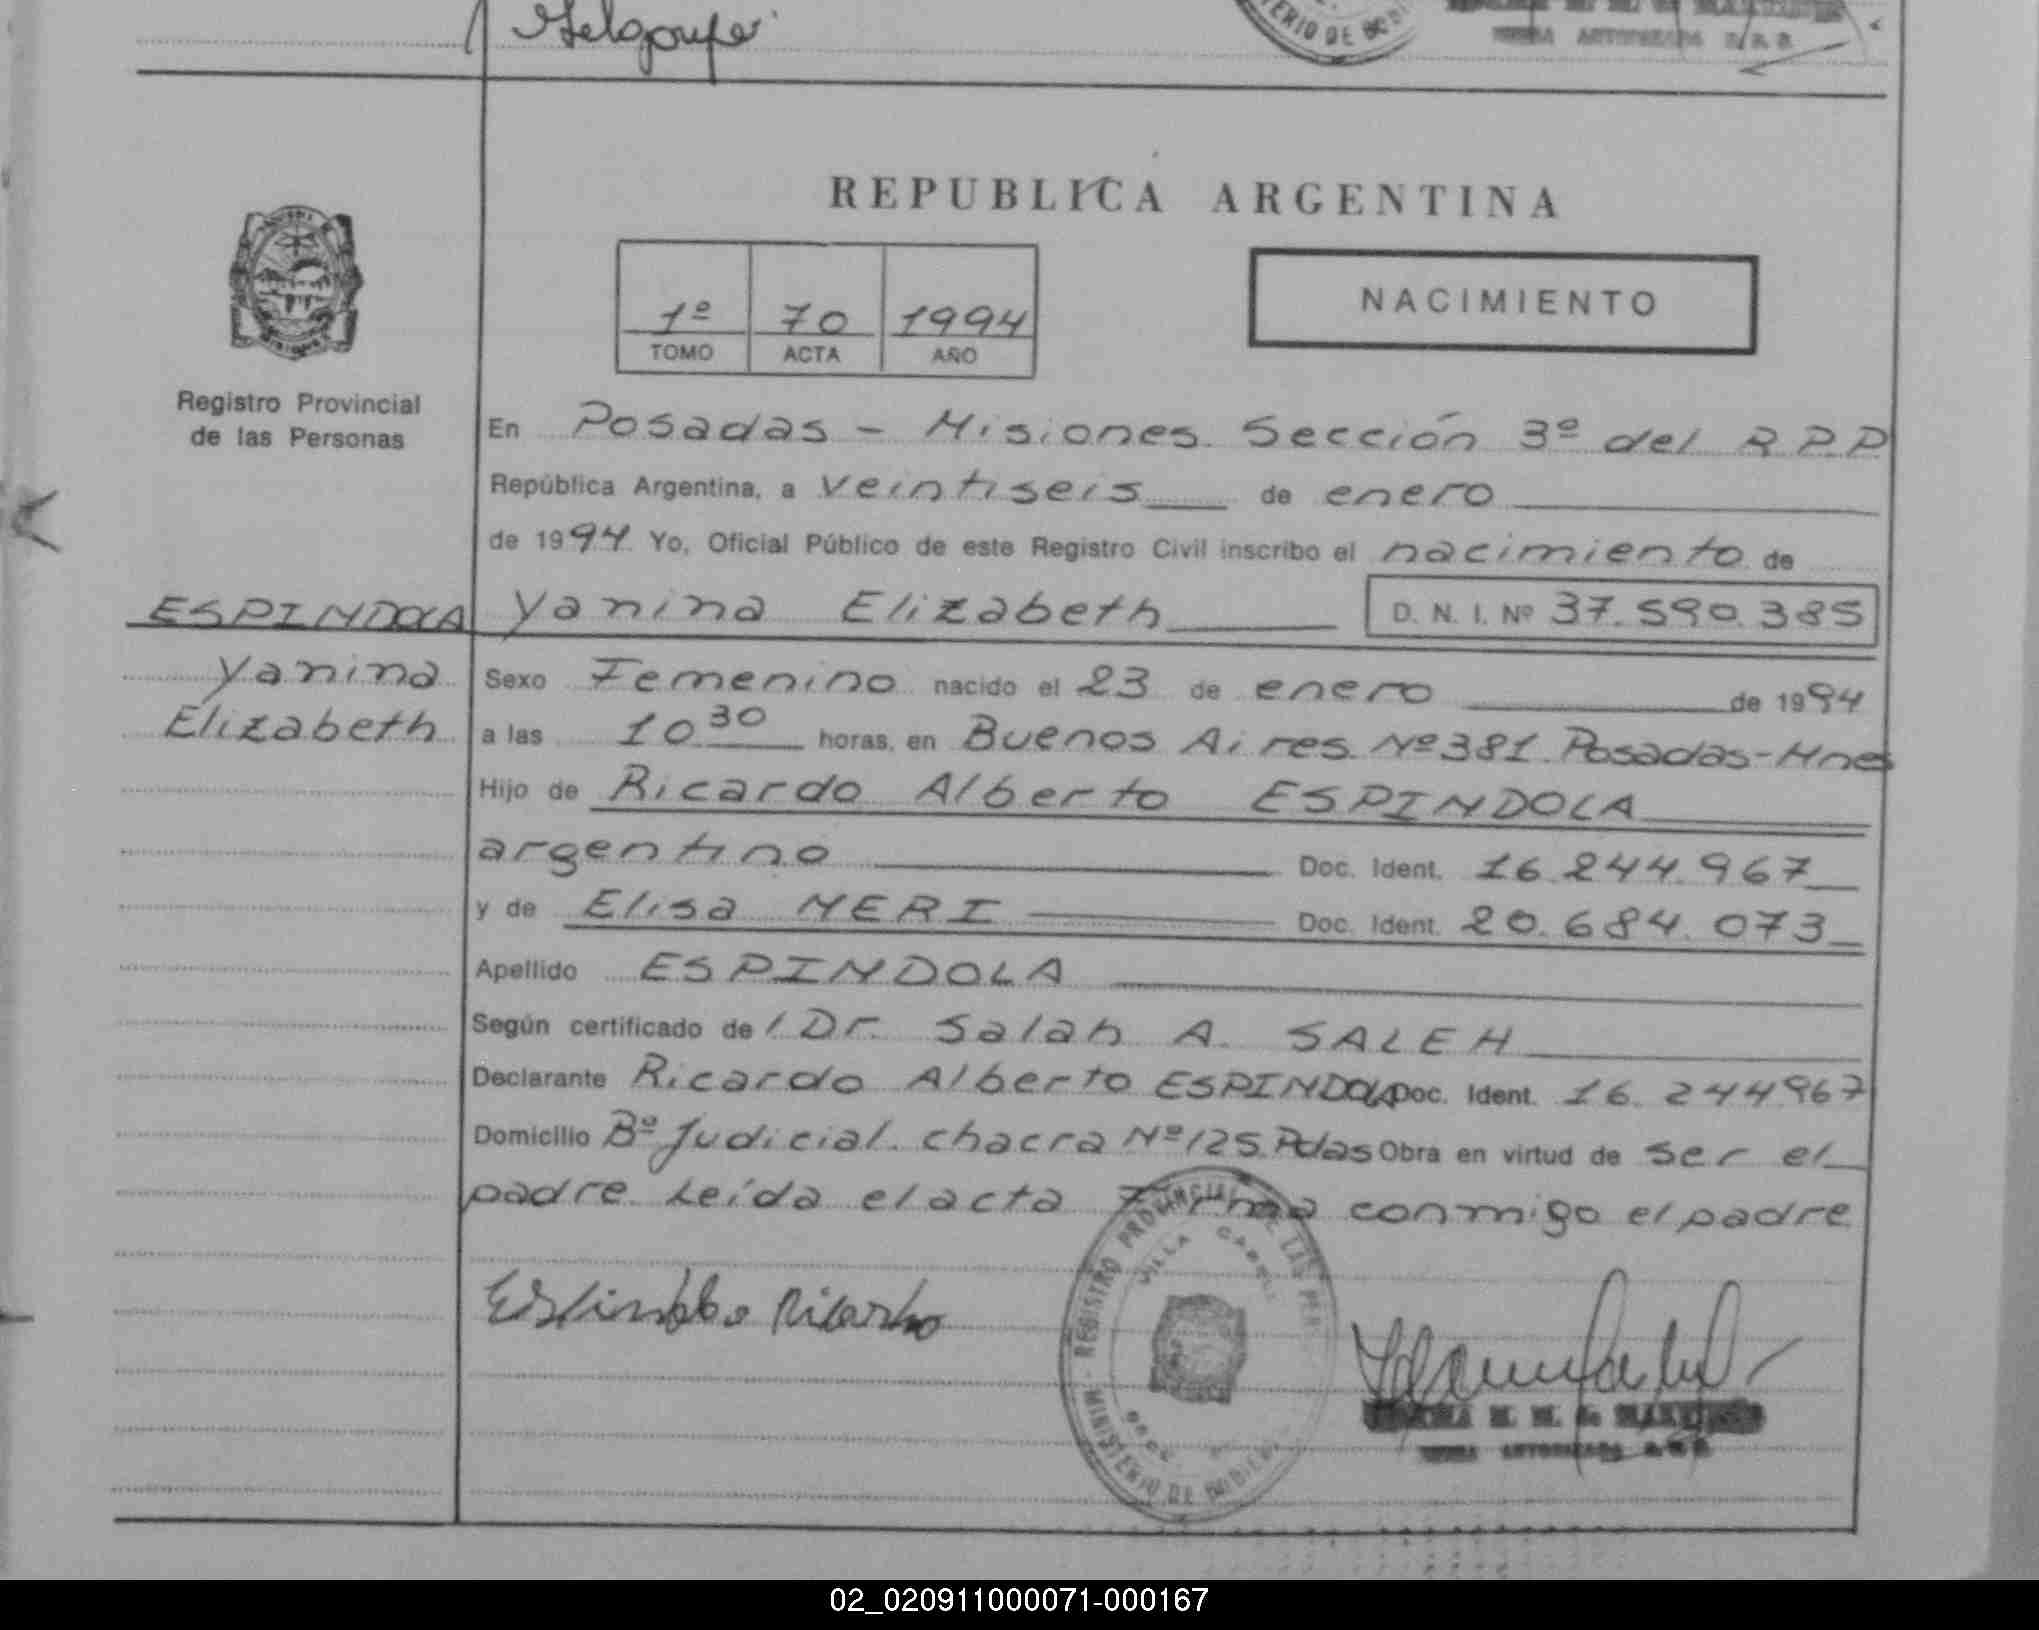 REPUBLICA ARGENTINA
1º 70 1994
TOMO ACTA AÑO
NACIMIENTO
Registro Provincial
de las Personas
En Posadas - Misiones. Sección 3º del R.P.P
República Argentina, a veintiseis de enero
de 1994 Yo, Oficial Público de este Registro Civil inscribo el nacimiento de
ESPINDOLA Yanina Elizabeth D. N. I. Nº 37.590.385
Yanina Sexo Femenino nacido el 23 de enero de 1994
Elizabeth a las 10 30 horas, en Buenos Aires Nº 381 Posadas-Mnes
Hijo de Ricardo Alberto ESPINDOLA
argentino Doc. Ident. 16.244.967
y de Elisa NERI Doc. Ident. 20.684.073
Apellido ESPINDOLA
Según certificado de l Dr. Salah A. SALEH
Declarante Ricardo Alberto ESPINDOLA Doc. Ident. 16.244.967
Domicilio Bº Judicial. chacra Nº 125 Pdas Obra en virtud de ser el
padre. Leída el acta Firma conmigo el padre
REGISTRO PROVINCIAL DE LAS PER
VILLA CABEL
MINISTERIO DE GOBIER
Espindola Ricardo
M. M. de MARTINEZ
FIRMA AUTORIZADA
02_020911000071-000167